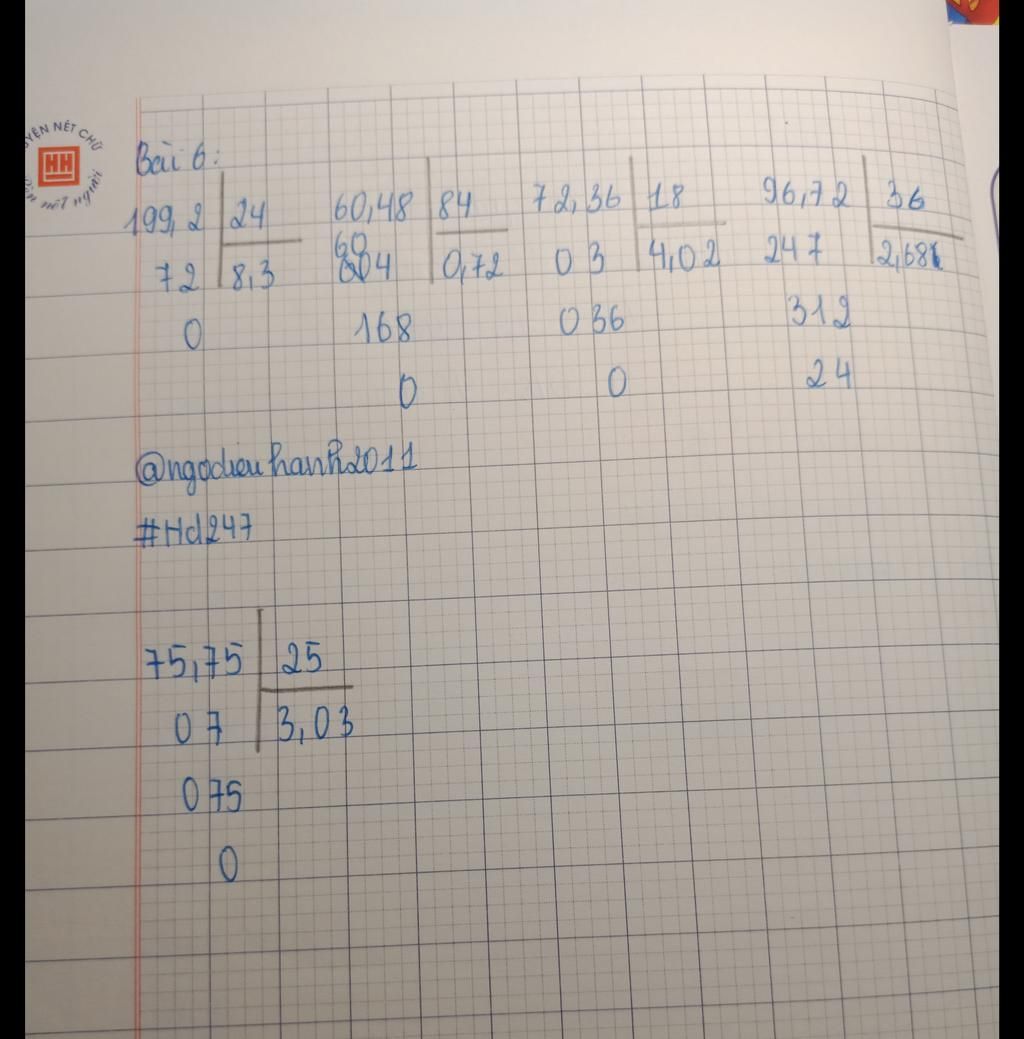 LUYỆN NÉT CHỮ
HH
Rèn nết người
Bài 6:
199,2 24 60,48 84 72,36 18 96,72 36
72 8,3 604 0,72 03 4,02 247 2,68
0 168 036 312
0 0 24
@ngocdieuhanh2011
#Hd247
75,75 25
07 3,03
075
0